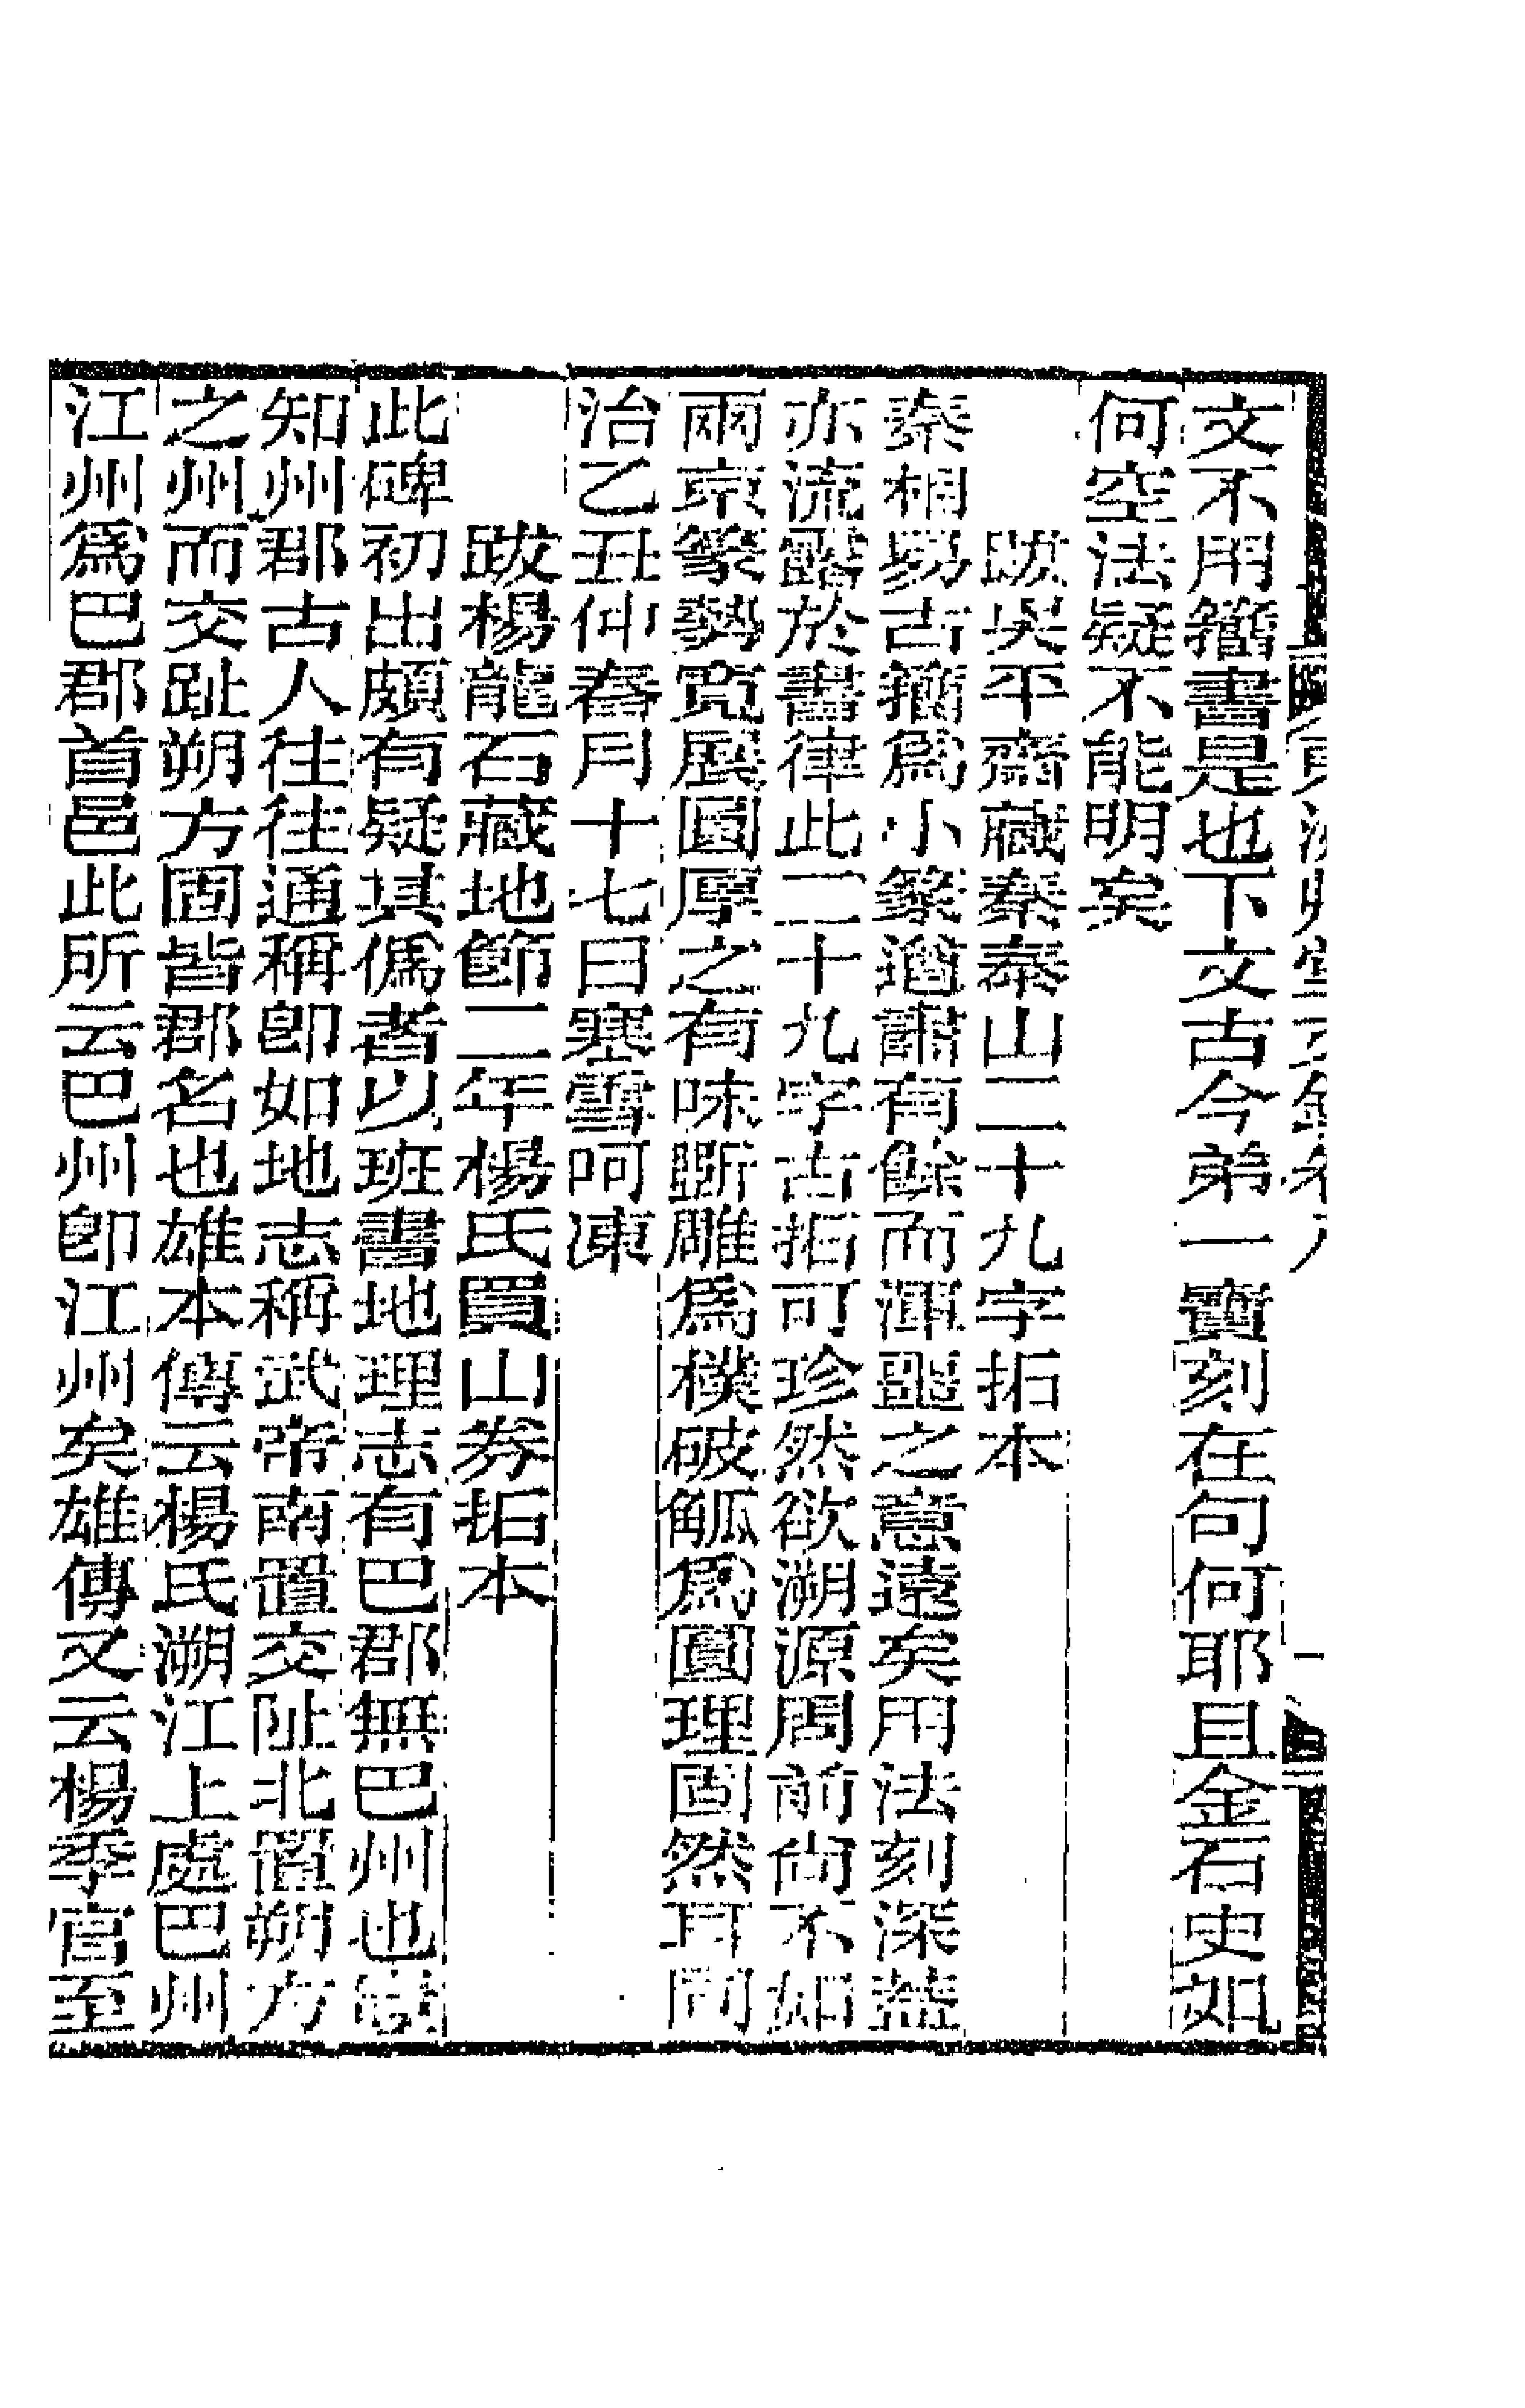 文不用籀書是也下文古今弟一寶刻在句何耶且金石史如
何空法疑不能明矣
跋吳平齋藏秦泰山二十九字拓本
秦相易古籀爲小篆遒肅有餘而渾噩之意遠矣用法刻深葢
亦流露於書律此二十九字古拓可珍然欲溯源周前尙不如
兩京篆勢寬展圓厚之有味斲雕爲樸破觚爲圜理固然耳同
治乙丑仲春月十七日寒雪呵凍
跋楊龍石藏地節二年楊氏買山券拓本
此碑初出頗有疑其僞者以班書地理志有巴郡無巴州也
知州郡古人往往通稱卽如地志稱武帝南置交阯北置朔方
之州而交趾朔方固皆郡名也雄本傳云楊氏溯江上處巴州
江州爲巴郡首邑此所云巴州卽江州矣雄傳又云楊季官至